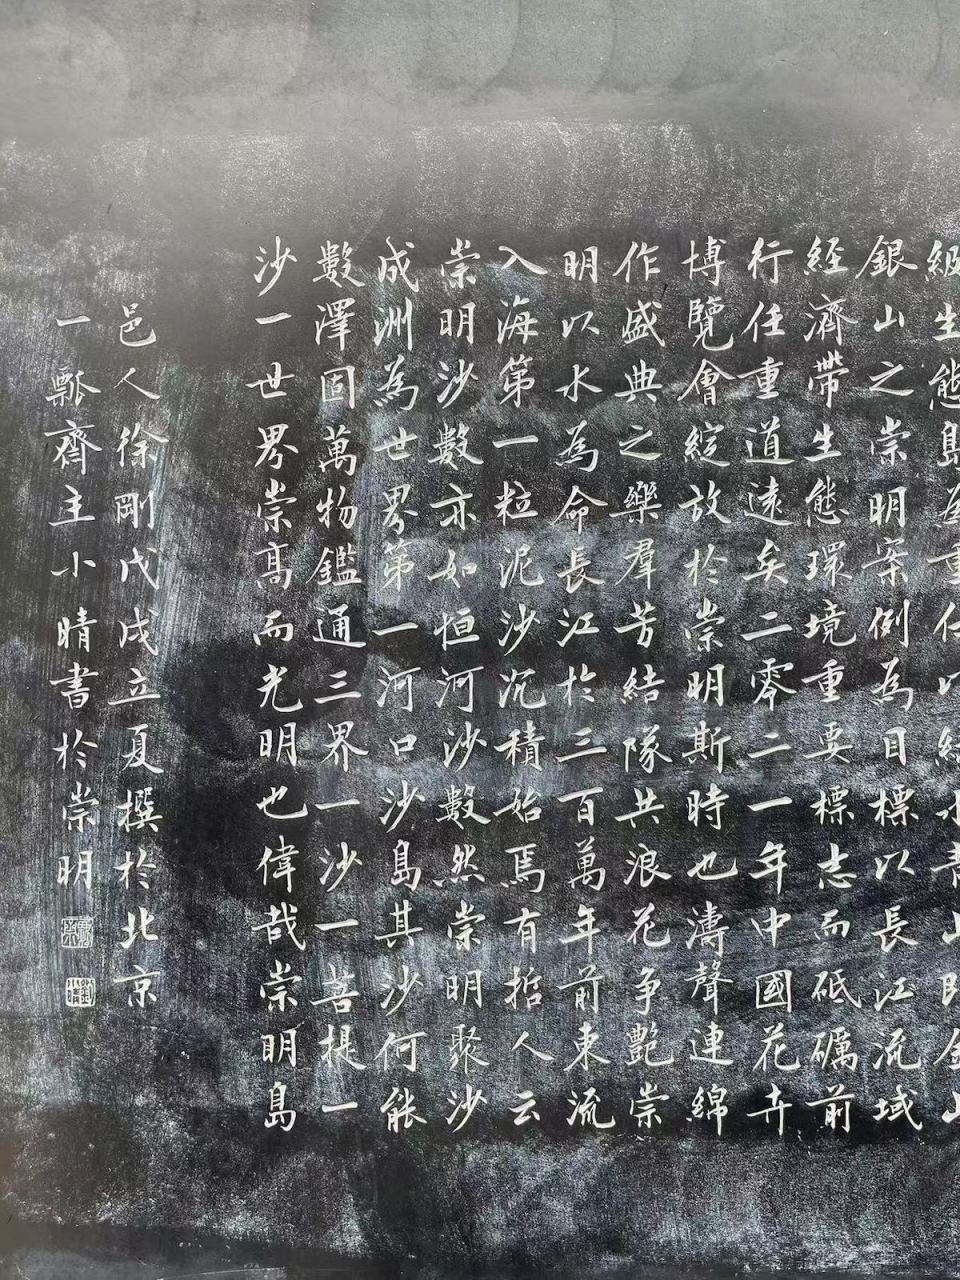 級生態島為重任以綠水青山即金山
銀山之崇明案例為目標以長江流域
經濟帶生態環境重要標志而砥礪前
行任重道遠矣二零二一年中國花卉
博覽會綻放於崇明斯時也濤聲連綿
作盛典之樂羣芳結隊共浪花争艷崇
明以水為命長江於三百萬年前東流
入海第一粒泥沙沉積始焉有哲人云
崇明沙數亦如恒河沙數然崇明聚沙
成洲為世界第一河口沙島其沙何能
數澤固萬物鑑通三界一沙一菩提一
沙一世界崇高而光明也偉哉崇明島
邑人徐剛戊戌立夏撰於北京
一瓢齋主小晴書於崇明